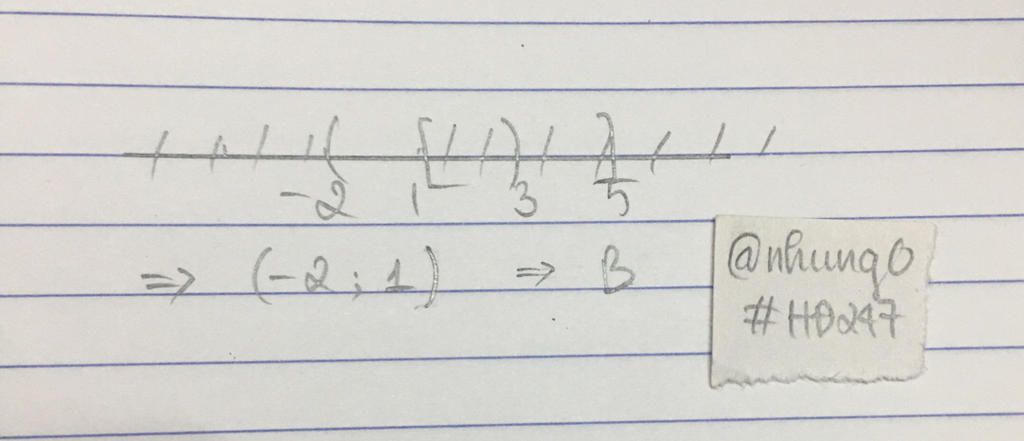 ( [ ) ]
-2 1 3 5
=> (-2 ; 1) => B
@nhungO
#HĐ247